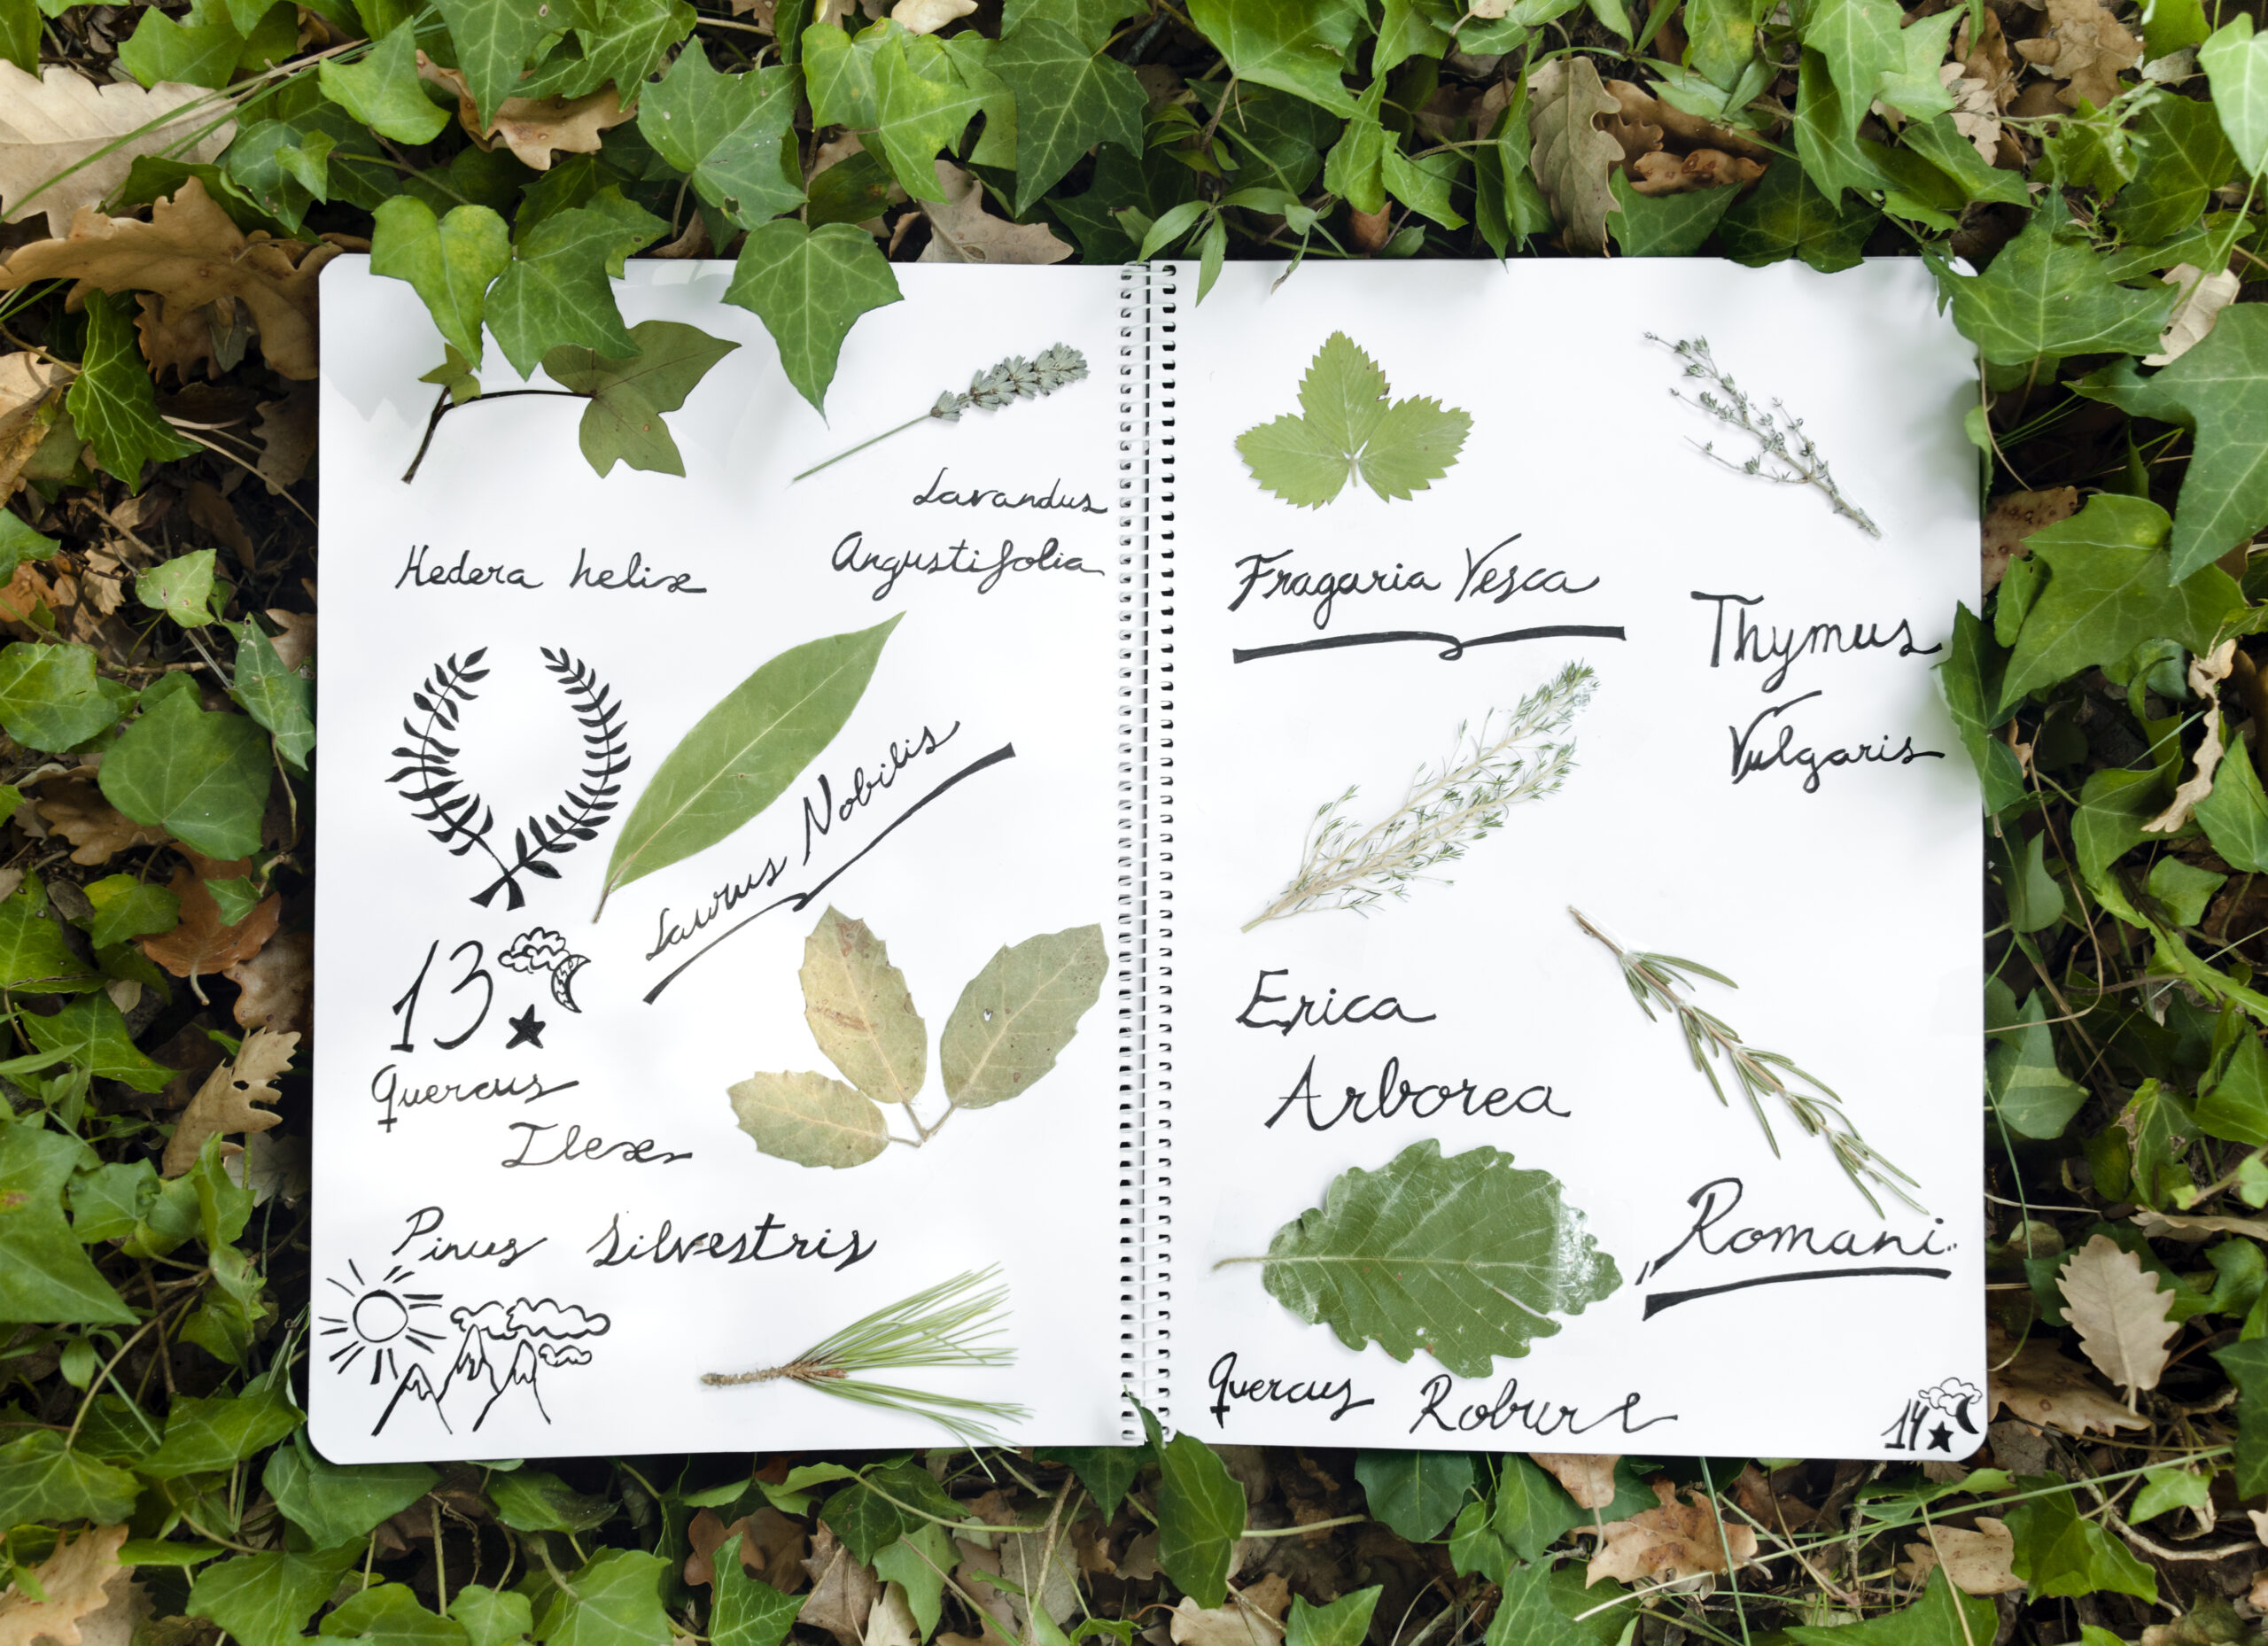 Hedera helix
Lavandus
Angustifolia
Laurus Nobilis
13
Quercus
Ilex
Pinus Silvestris
Fragaria Vesca
Thymus
Vulgaris
Erica
Arborea
Romani
Quercus Robur
14